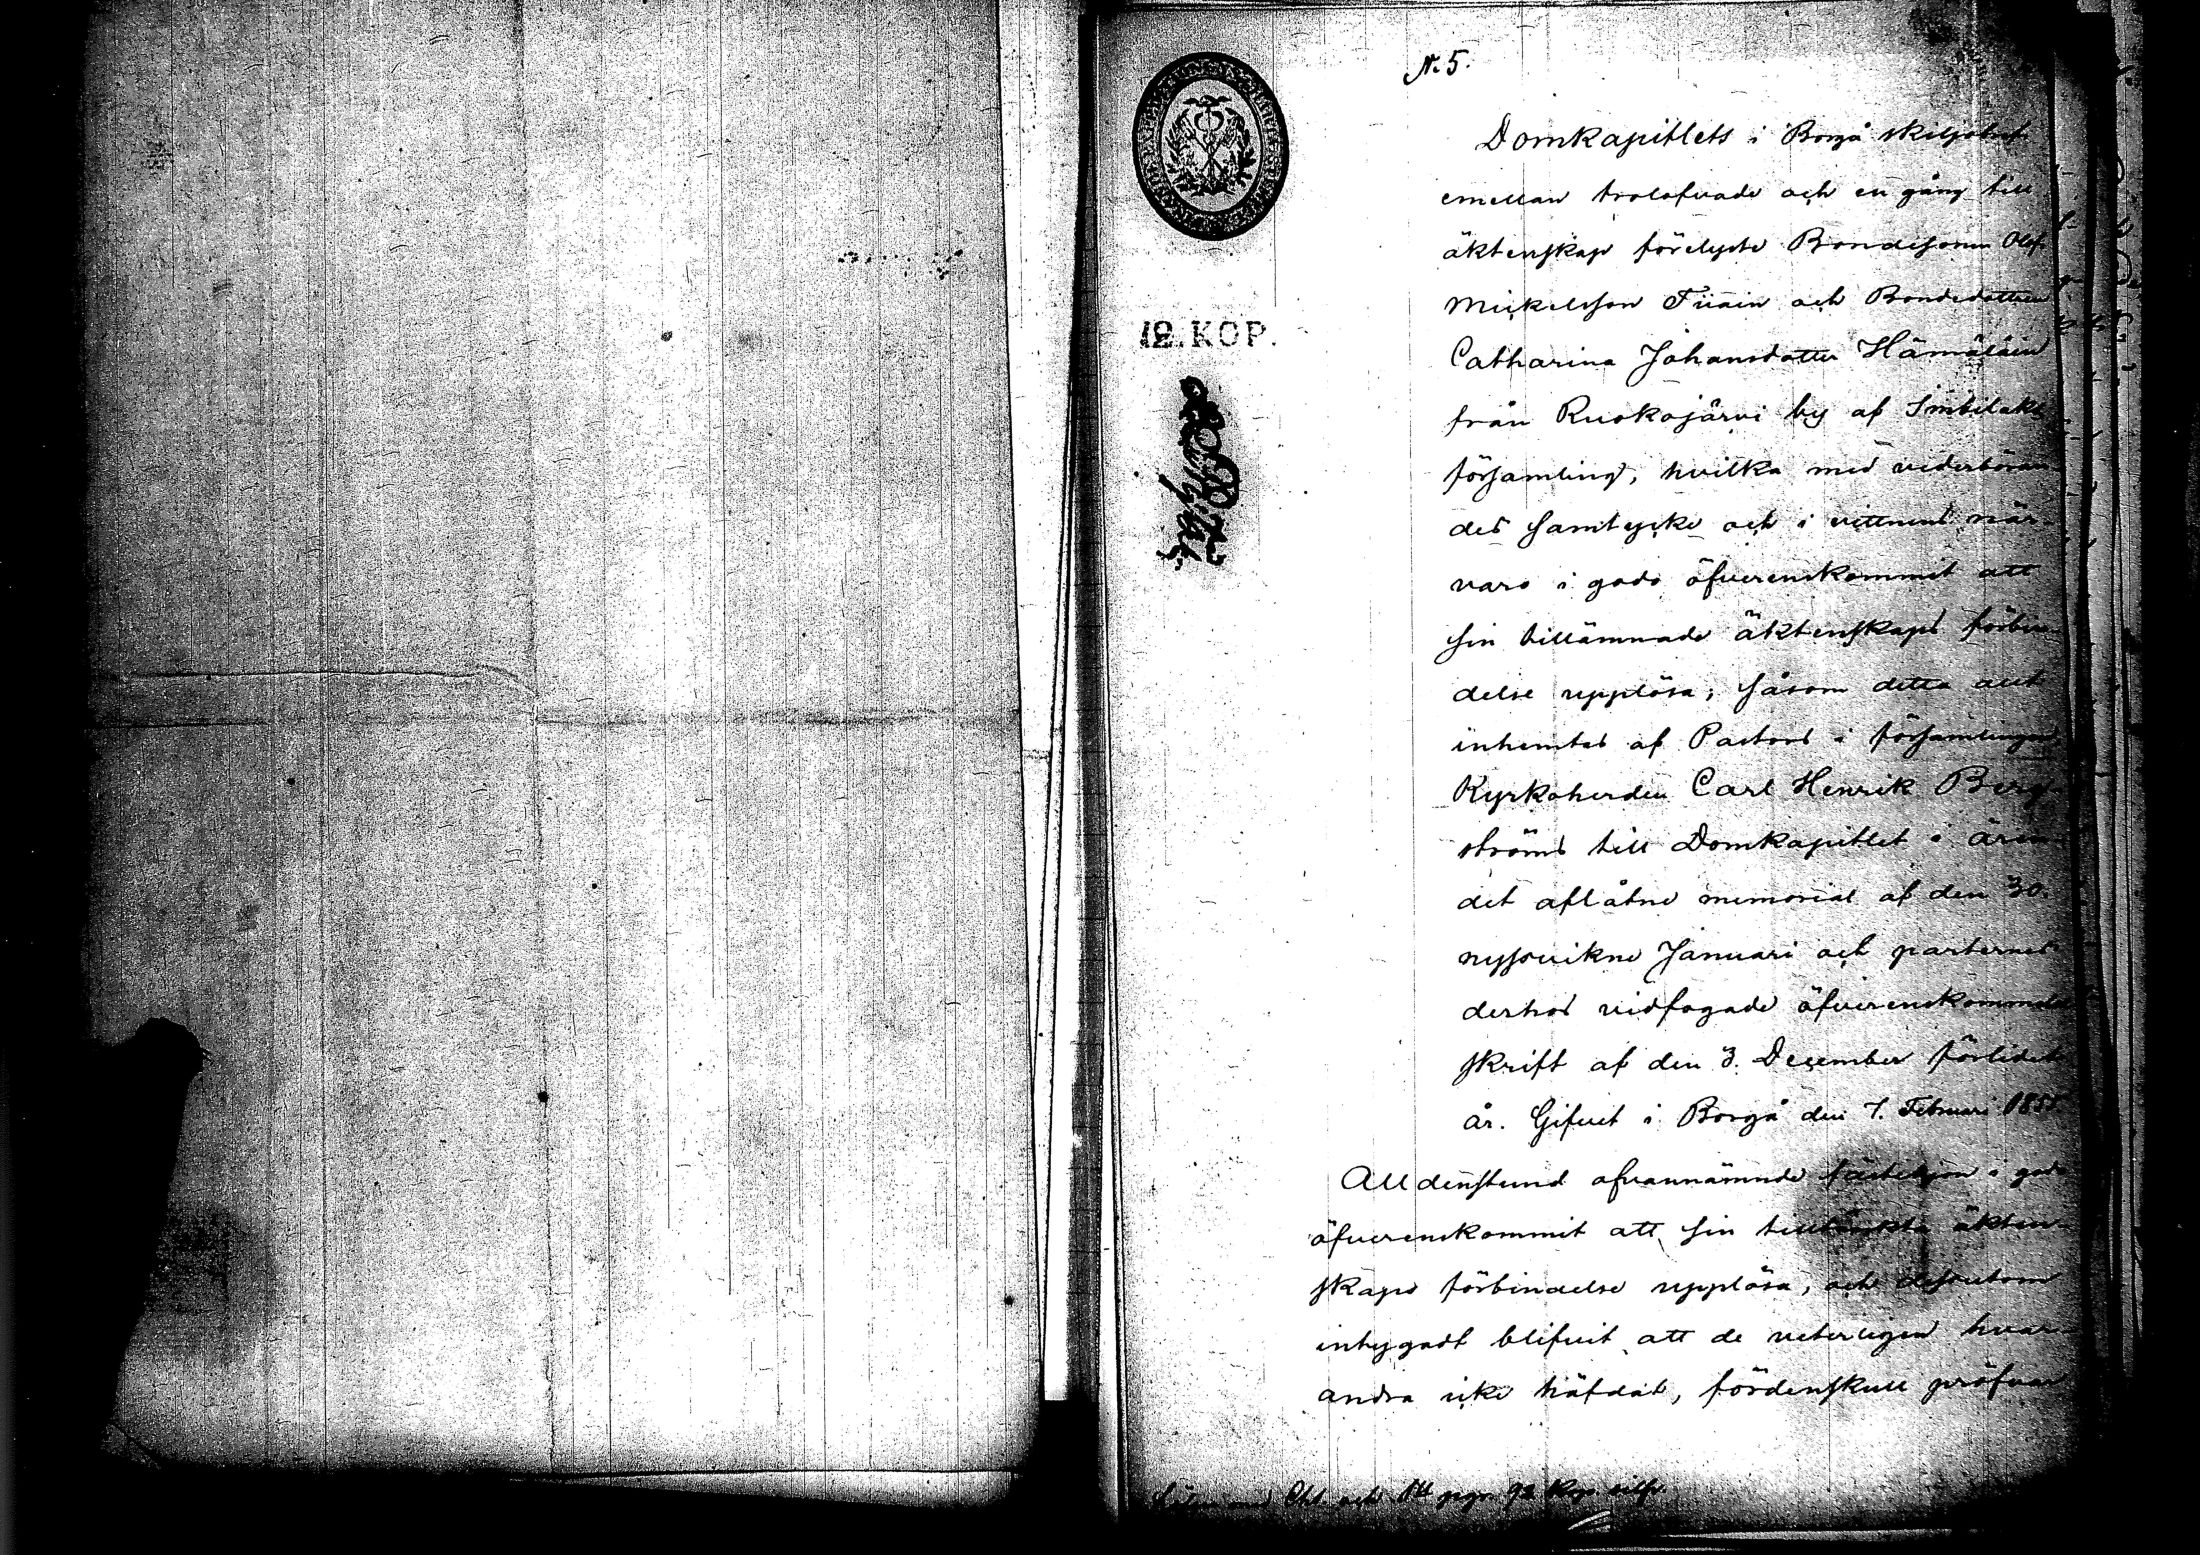 N. 5.
Domkapitlets i Borgå skiljobref
emellan trolofvade och en gång till
äktenskap förelyste Bondesonen Olof
Mickelsson Tiiain och Bondedottren
Catharina Johansdotter Hämäläin
från Ruokojärvi by af Imbilaks
församling, hvilka med vederböran-
des samtycke och i vittnens när-
varo i godo öfverenskommit att
sin tillämnade äktenskaps förbin-
delse upplösa; såsom detta allt
inhemtas af Pastors i församlingen
Kyrkoherden Carl Henrik Berg-
ströms till Domkapitlet i ären-
det aflåtne memorial af den 30.
nyssvikne Januari och parternes
derhos vidfogade öfverenskommelse
skrift af den 3. December förlidet
år. Gifvet i Borgå den 7. Februari 1855.
Alldenstund ofvannämnde fästehjon i godo
öfverenskommit att sin tilltänkta äkten-
skaps förbindelse upplösa, och dessutom
intygadt blifvit att de veterligen hvar-
andra icke häfdat, fördenskull pröfvar
12. KOP.
och pgr. 92 kop. silfr.